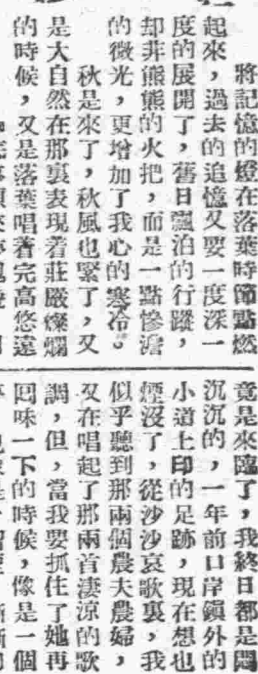 將記憶的燈在落葉時節點燃
起來，過去的追憶又要一度深一
度的展開了，舊日飄泊的行蹤，
却非熊熊的火把，而是一點慘澹
的微光，更增加了我心的寒冷。
秋是來了，秋風也緊了，又
是大自然在那裏表現着莊嚴燦爛
的時候，又是落葉唱着完高悠遠
竟是來臨了，我終日都是悶
沉沉的，一年前口岸鎮外的
小道上印的足跡，現在想也
煙沒了，從沙沙哀歌裏，我
似乎聽到那兩個農夫農婦，
又在唱起了那兩首淒涼的歌
調，但，當我要抓住了她再
囘味一下的時候，像是一個